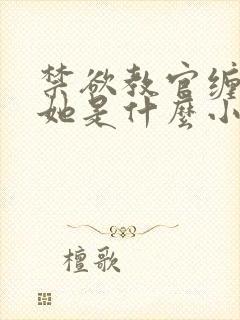 禁欲教官缠
她是什麼小
檀歌